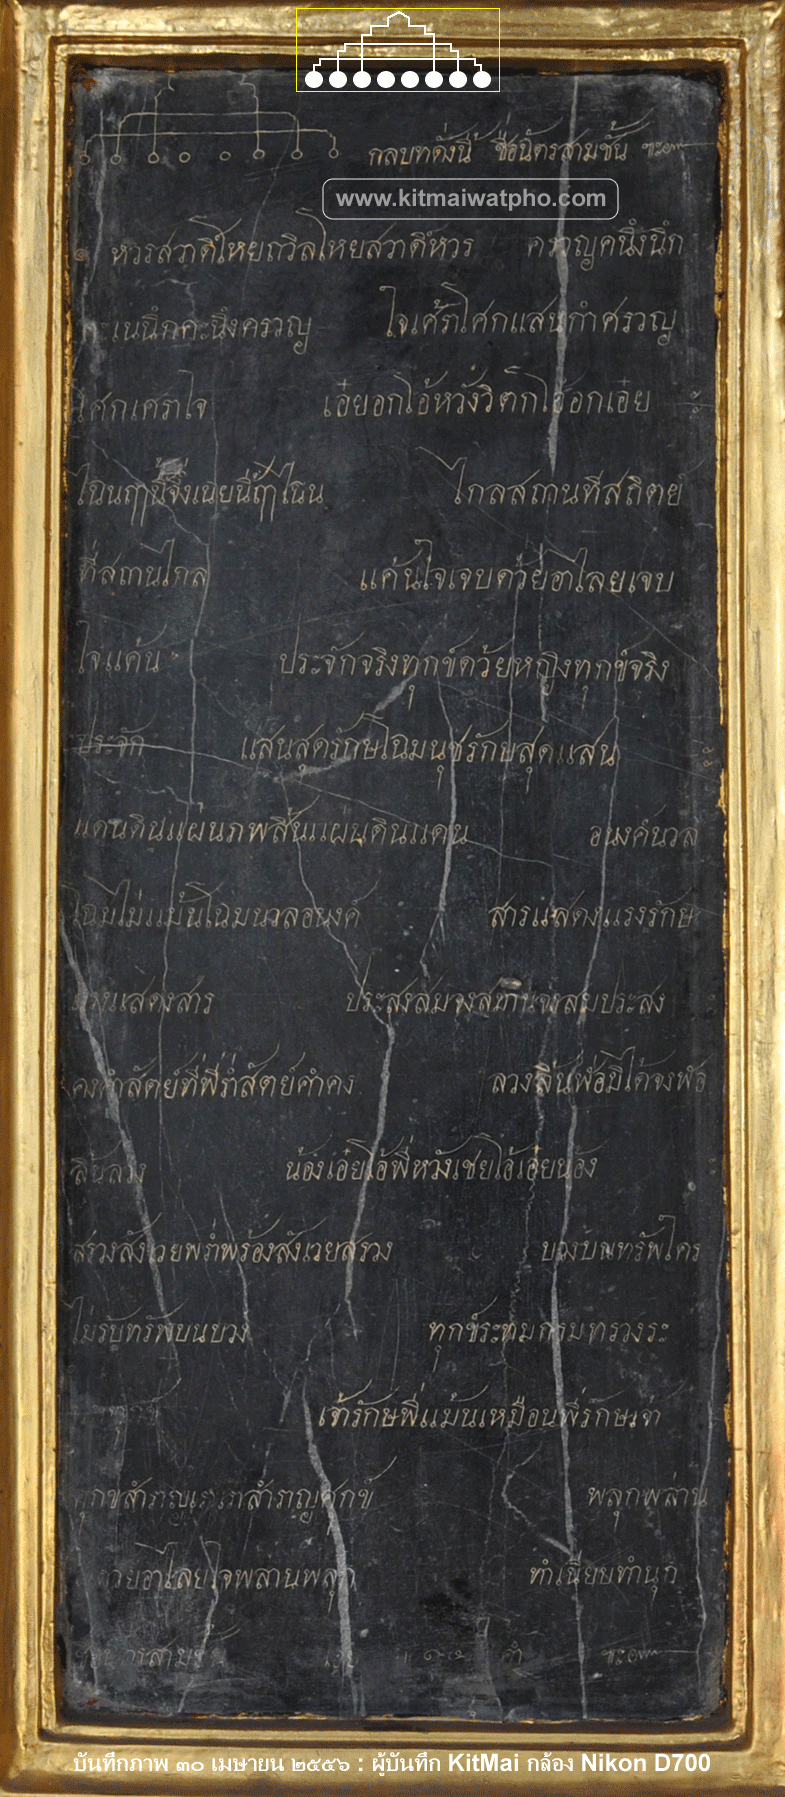 กลบทดั่งนี้ ชื่อฉัตรสามชั้น ฯะ๛
www.kitmaiwatpho.com
๏ หวรสวาดิโหยถวิลโหยสวาดิหวร ครวญคนึงนึก
คะเนนึกคะนึงครวญ ใจเศร้าโศกแสนกำศรวญ
โศกเศร้าใจ เอ๋ยอกโอ้หวั่งวิตกโอ้อกเอ๋ย
ไฉนฤๅนี้จึ่งเฉยนี่ฤๅไฉน ไกลสถานที่สถิตย์
ที่สถานไกล แค้นใจเจบด้วยอาไลยเจบ
ใจแค้น ประจักจริงทุกข์ด้วยหญิงทุกข์จริง
ประจัก แสนสุดรักษโฉมนุชรักษสุดแสน
แดนดินแผ่นภพสิ้นแผ่นดินแดน อนงค์นวล
โฉมไม่แม้นโฉมนวลอนงค์ สารแสดงแรงรักษ
แสดงสาร ประสงสมจงสฤทินจงสมประสง
คงคำสัตย์ที่พี่ร่ำสัตย์คำคง ลวงลิ้นพ้อมิได้จงพ้อ
ลิ้นลวง น้องเอ๋ยโอ้พี่หวังเชยโอ้เอ๋ยน้อง
สรวงสังเวยพร่ำพร้องสังเวยสรวง บวงบนทรัพใคร
ไม่รับทรัพบนบวง ทุกข์ระทมกรมทรวงระ
เจ้ารักษพี่แม้นเหมือนพี่รักษเจ้า
ศุกขสำราญ สำราญศุกข์ พลุกพล่าน
ด้วยอาไลยใจพลานพลุก ทำเนียบทำนุก
ฉัตรสามชั้น คำ ฯะ๛
บันทึกภาพ ๓๐ เมษายน ๒๕๕๖ : ผู้บันทึก KitMai กล้อง Nikon D700